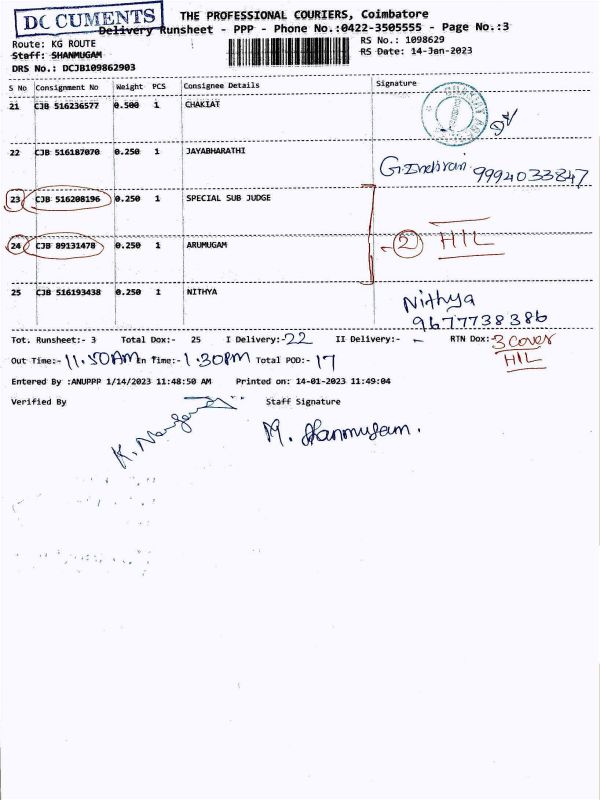 DOCUMENTS
THE PROFESSIONAL COURIERS, Coimbatore
Delivery Runsheet - PPP - Phone No.:0422-3505555 - Page No.:3
Route: KG ROUTE
RS No.: 1098629
Staff: SHANMUGAM
RS Date: 14-Jan-2023
DRS No.: DCJB109862903
S No Consignment No Weight PCS Consignee Details Signature
21 CJB 516236577 0.500 1 CHAKIAT
22 CJB 516187070 0.250 1 JAYABHARATHI G.Indirani 9994033847
23 CJB 516208196 0.250 1 SPECIAL SUB JUDGE
② HIL
24 CJB 89131478 0.250 1 ARUMUGAM
25 CJB 516193438 0.250 1 NITHYA Nithya
9677738386
Tot. Runsheet:- 3 Total Dox:- 25 I Delivery:- 22 II Delivery:- - RTN Dox:- 3 cover
HIL
Out Time:- 11.50AM In Time:- 1.30PM Total POD:- 17
Entered By :ANUPPP 1/14/2023 11:48:50 AM Printed on: 14-01-2023 11:49:04
Verified By Staff Signature
M. Shanmugam.